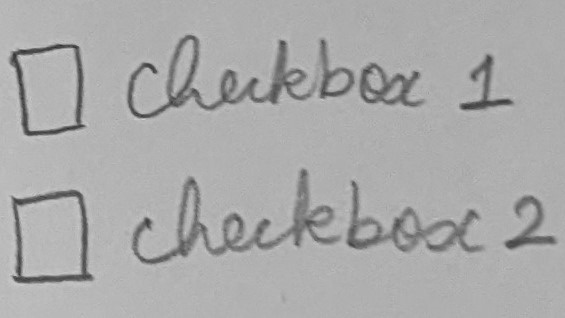 ☐ checkbox 1
☐ checkbox 2